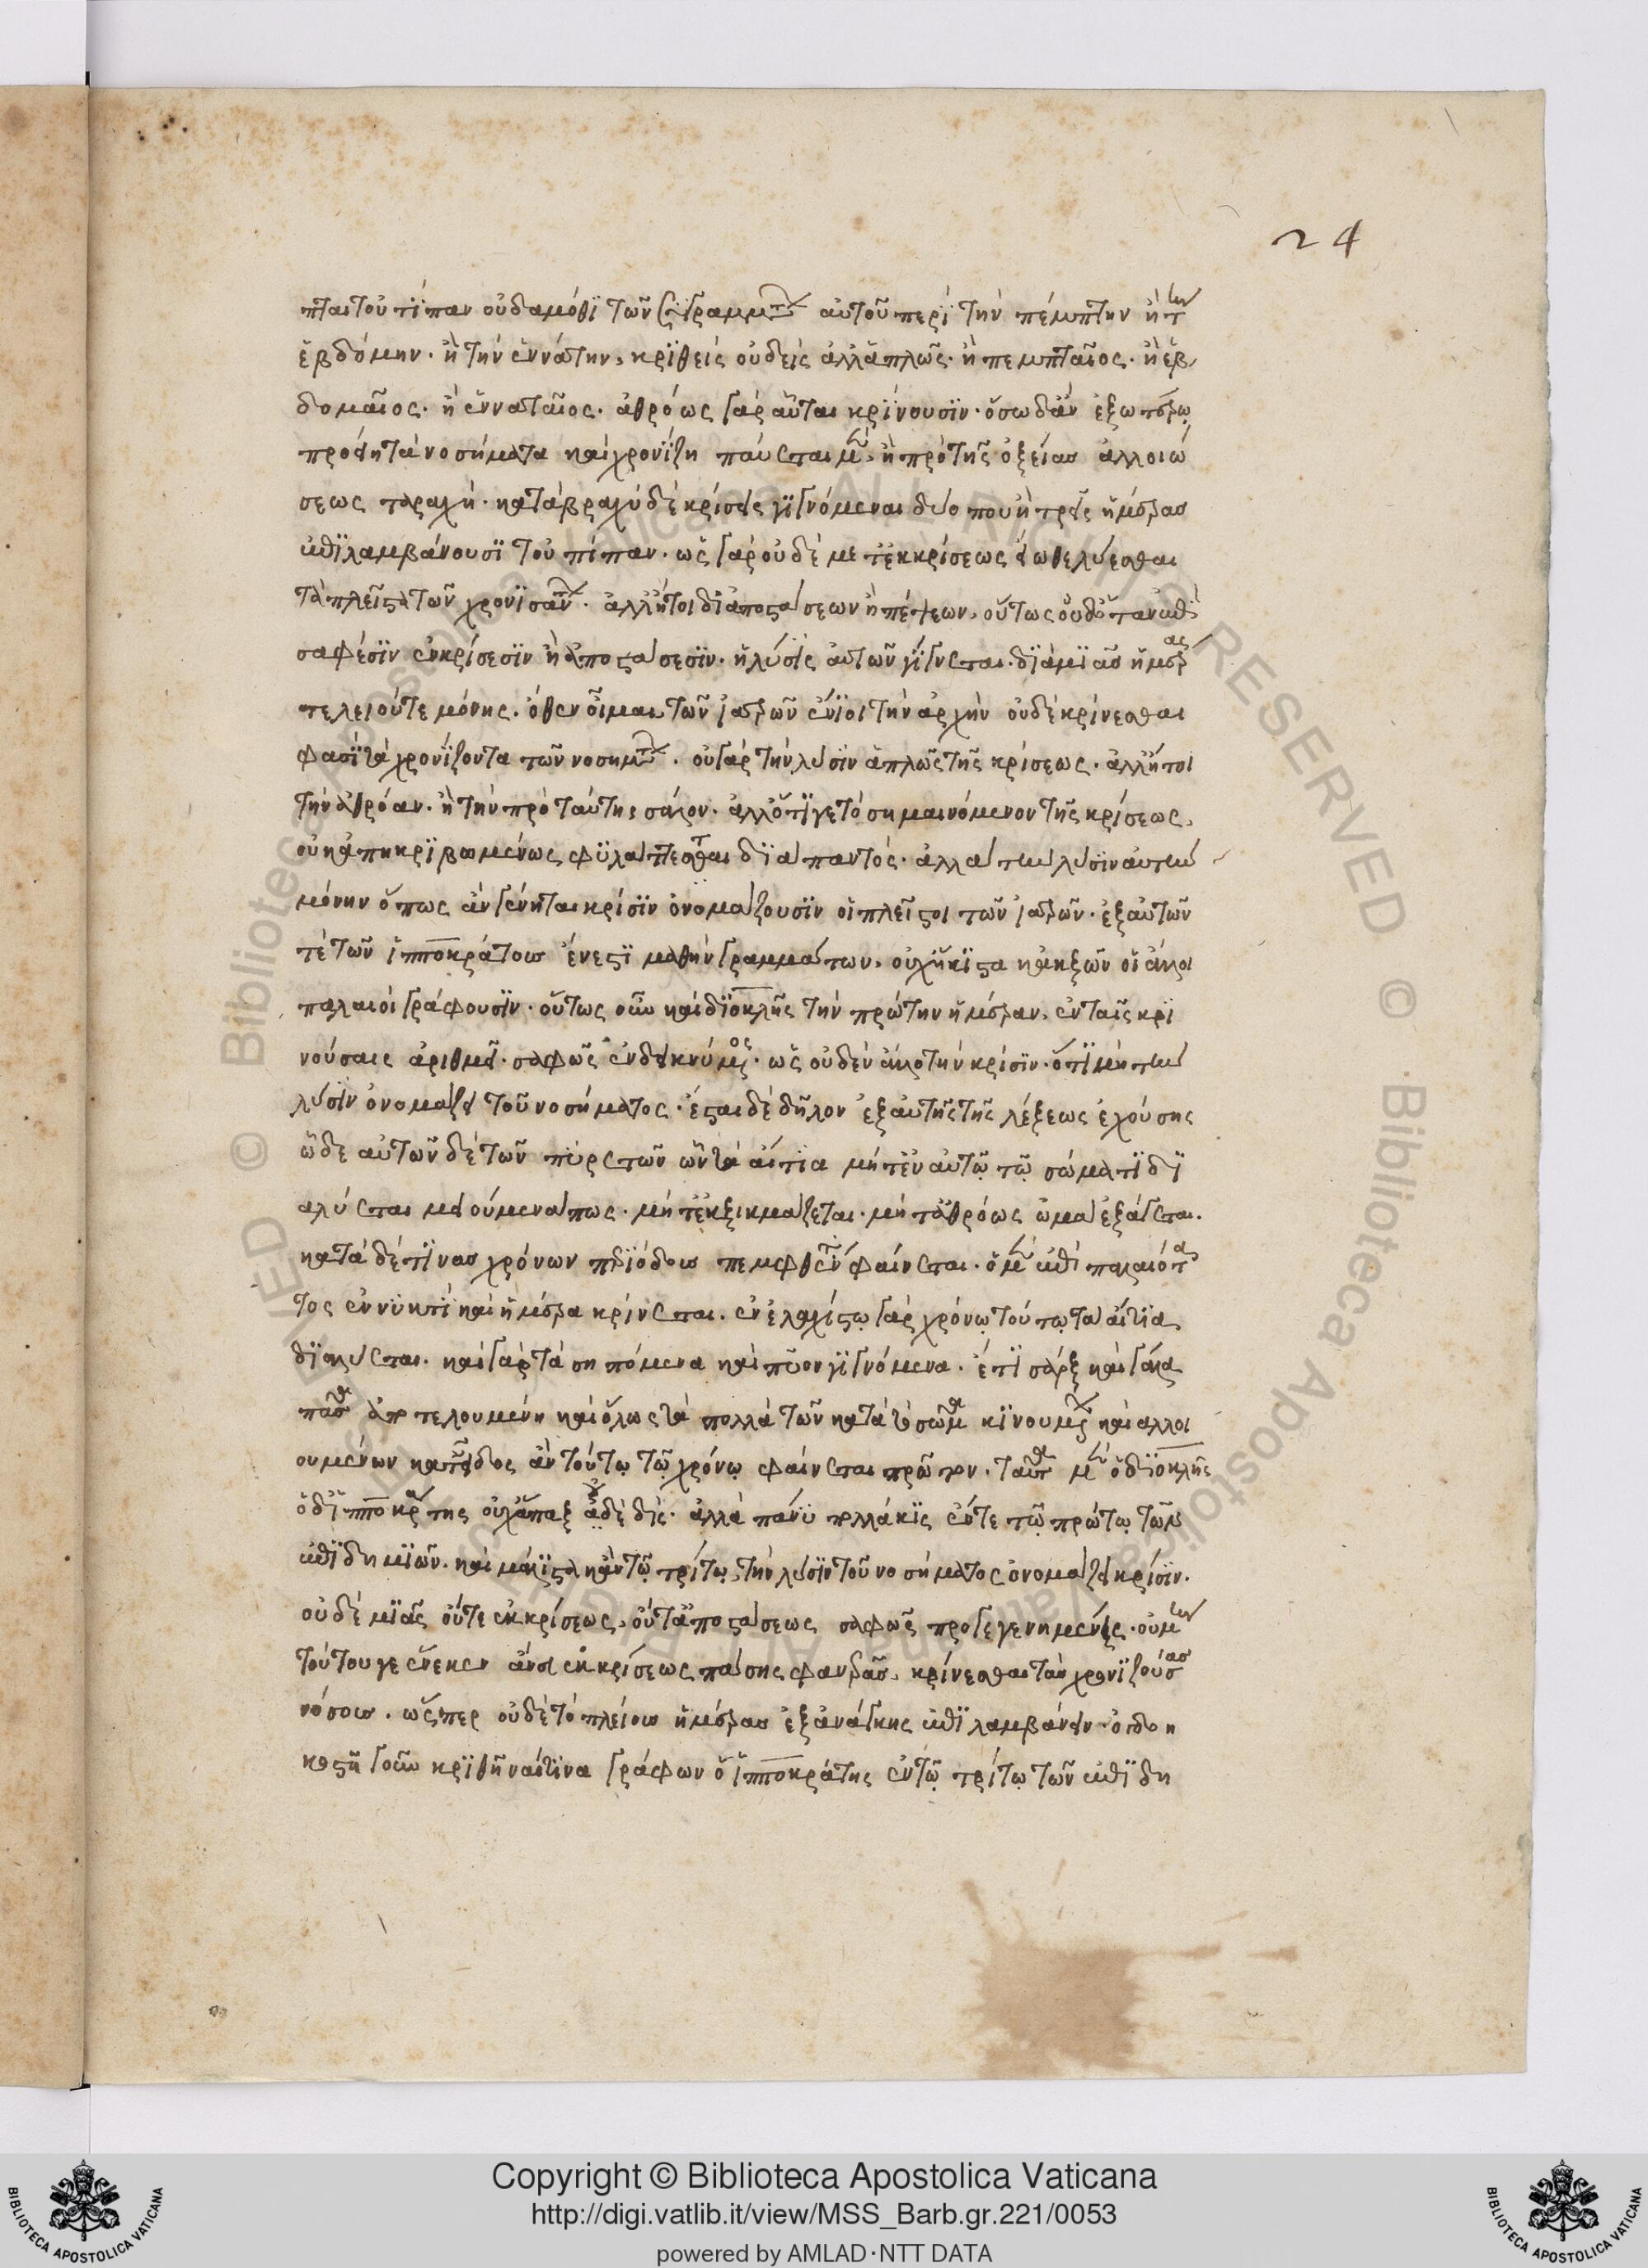 24
πται τοὐπίπαν οὐδαμόθι τῶν συγγραμμάτων αὐτοῦ περὶ τὴν πέμπτην ἢ τὴν
ἑβδόμην· ἢ τὴν ἐννάτην, κριθεὶς οὐδεὶς ἀλλ' ἁπλῶς· ἢ πεμπταῖος· ἢ ἑβ
δομαῖος· ἢ ἐνναταῖος· ἀθρόως γὰρ αὗται κρίνουσιν· ὅσω δ' ἂν ἐξωτέρω
προΐη τὰ νοσήματα καὶ χρονίζη παύεται μὲν ἡ πρὸ τῆς ὀξείας ἀλλοιώ
σεως ταραχή· κατὰ βραχὺ δὲ κρίσεις γιγνόμεναι δύο που ἢ τρεῖς ἡμέρας
ἐπιλαμβάνουσι τοὐπίπαν· ὡς γὰρ οὐδὲ μετ' ἐκκρίσεως εἴωθε λύεσθαι
τὰ πλεῖστα τῶν χρονισάντων· ἀλλ' ἤτοι δι' ἀποστάσεων ἢ πέψεων, οὕτως οὐδ' ὅταν ἐπὶ
σαφέσιν ἐκκρίσεσιν ἢ ἀποστάσεσιν· ἡ λύσις αὐτῶν γίγνεται· διὰ μιᾶς ἡμέρας
τελειοῦται μόνης· ὅθεν οἶμαι τῶν ἰατρῶν ἔνιοι τὴν ἀρχὴν οὐδὲ κρίνεσθαι
φασὶ τὰ χρονίζοντα τῶν νοσημάτων· οὐ γὰρ τὴν λύσιν ἁπλῶς τῆς κρίσεως· ἀλλ' ἤτοι
τὴν ἀθρόαν· ἢ τὴν πρὸ ταύτης σάλον· ἀλλ' ὅτι γε τὸ σημαινόμενον τῆς κρίσεως,
οὐκ ἀπηκριβωμένως φυλάττεσθαι διὰ παντός· ἀλλὰ τὴν λύσιν αὐτὴν
μόνην ὅπως ἂν γένηται κρίσιν ὀνομάζουσιν οἱ πλεῖστοι τῶν ἰατρῶν· ἐξ αὐτῶν
τὲ τῶν ἱπποκράτους ἔνεστι μαθεῖν γραμμάτων, οὐχ ἥκιστα κἀκ ξῶν οἱ ἄλλοι
παλαιοὶ γράφουσιν· οὕτως οὖν καὶ διοκλῆς τὴν πρώτην ἡμέραν, ἐν ταῖς κρι
νούσαις ἀριθμεῖ· σαφῶς ἐνδεικνύμενος· ὡς οὐδὲν ἄλλο τὴν κρίσιν· ὅτι μὴ τὴν
λύσιν ὀνομάζει τοῦ νοσήματος· ἔσται δὲ δῆλον ἐξ αὐτῆς τῆς λέξεως ἐχούσης
ὧδε αὐτῶν δὲ τῶν πυρετῶν ὧν τὰ αἴτια μήτ' ἐν αὐτῷ τῷ σώματι δι
αλύεται μειούμενά πως· μήτ' ἐκξικμάζεται· μήτ' ἀθρόως ἅμα ἐξάγεται·
κατὰ δέ τινας χρόνων περιόδους πεμφθὲν φαίνεται· ὁ μὲν ἐπὶ παλαιότα
τος ἐν νυκτὶ καὶ ἡμέρα κρίνεται· ἐν ἐλαχίστῳ γὰρ χρόνῳ τούτῳ τὰ αἴτια
διαλύεται· καὶ γὰρ τὰ σηπόμενα καὶ πῦον γιγνόμενα· ἔτι σὰρξ καὶ γάλα
πᾶσα ἀποτελουμένη καὶ ὅλως τὰ πολλὰ τῶν κατὰ τὸ σῶμα κινουμένων καὶ ἀλλοι
ουμένων κατ' εἶδος ἂν τούτῳ τῷ χρόνῳ φαίνεται πρῶτον· ταῦτα μὲν ὁ διοκλῆς
ὁ δ' ἱπποκράτης οὐχ ἅπαξ οὐδὲ δίς· ἀλλὰ πάνυ πολλάκις ἔν τε τῷ πρώτῳ τῶν
ἐπιδημιῶν· καὶ μάλιστα κἀν τῷ τρίτῳ, τὴν λύσιν τοῦ νοσήματος ὀνομάζει κρίσιν·
οὐδὲ μιᾶς οὔτε ἐκκρίσεως, οὔτ' ἀποστάσεως σαφῶς προγεγενημένης· οὐ μὴν
τούτου γε ἕνεκεν ἄνευ ἐκκρίσεως πάσης φανερᾶς, κρίνεσθαι τὰς χρονιζούσας
νόσους· ὥσπερ οὐδὲ τὸ πλείους ἡμέρας ἐξ ἀνάγκης ἐπιλαμβάνειν· ὀγδοη
κοστῇ γοῦν κριθῆναί τινα γράφων ὁ ἱπποκράτης ἐν τῷ τρίτῳ τῶν ἐπιδη
Copyright © Biblioteca Apostolica Vaticana
http://digi.vatlib.it/view/MSS_Barb.gr.221/0053
powered by AMLAD·NTT DATA